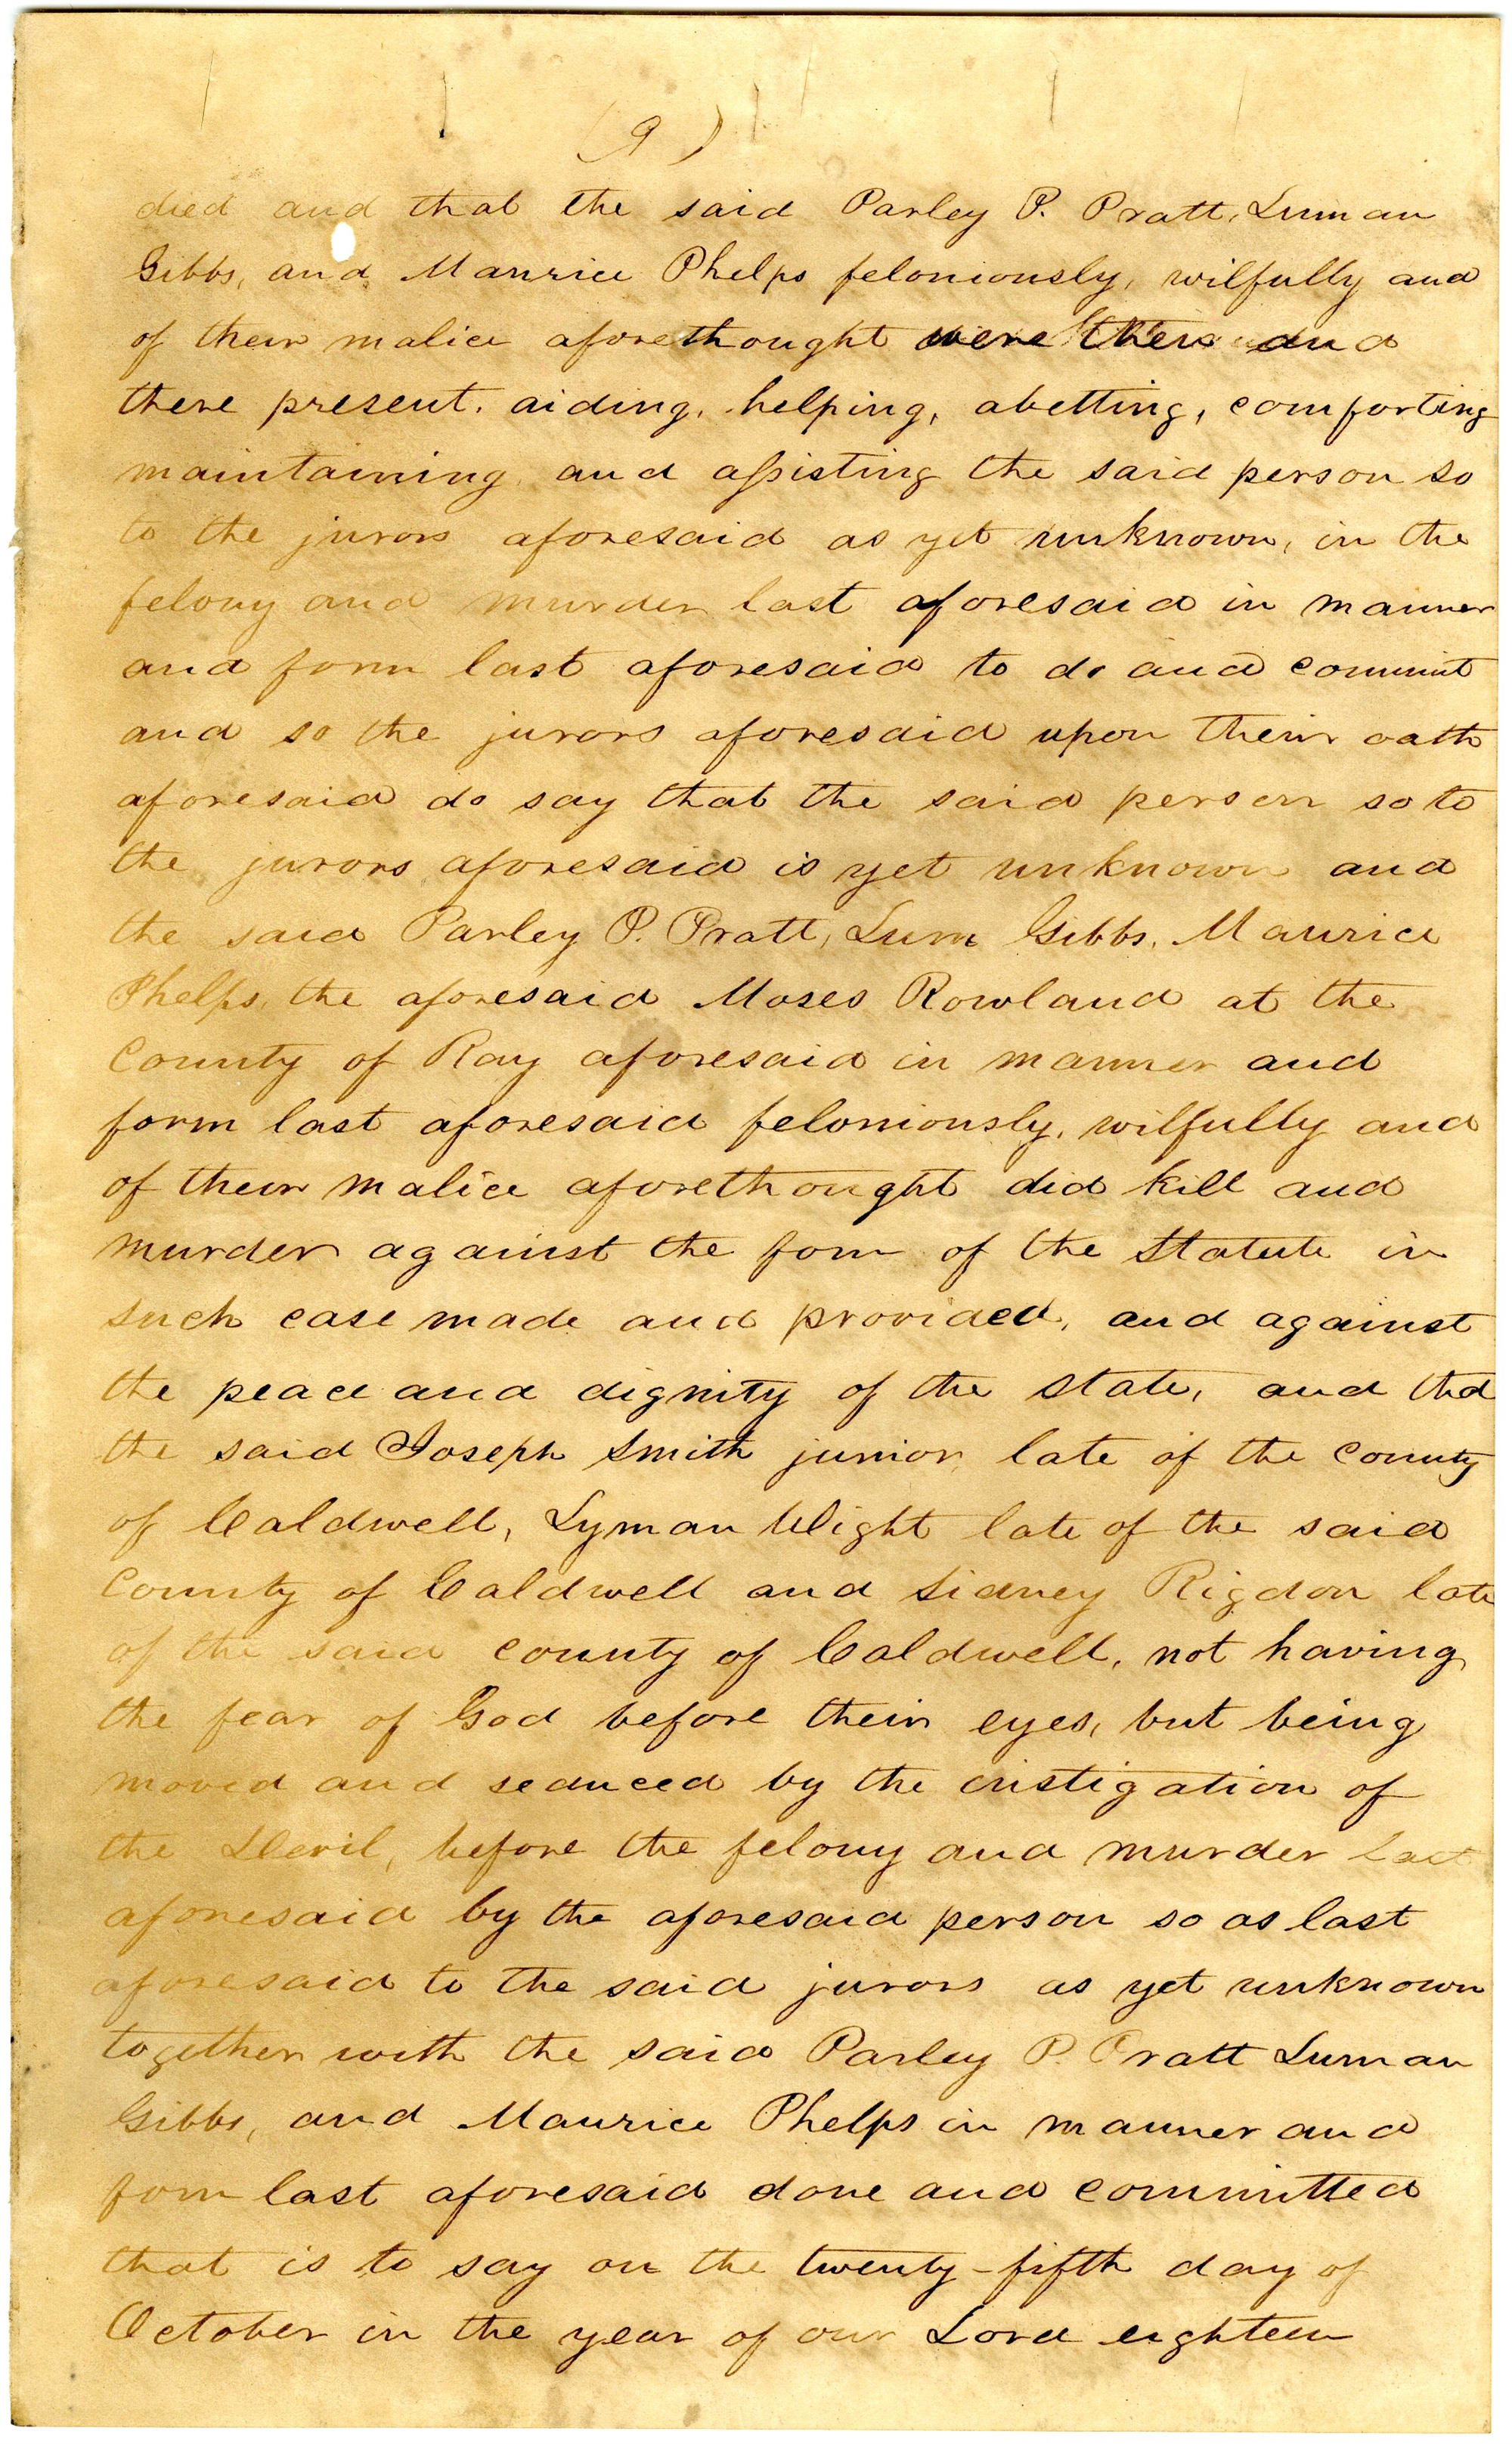 (9)
died and that the said Parley P. Pratt, Luman
Gibbs, and Maurice Phelps feloniously, wilfully and
of their malice aforethought were then and
there present. aiding, helping, abetting, comforting
maintaining and assisting the said person so
to the jurors aforesaid as yet unknown, in the
felony and murder last aforesaid in manner
and form last aforesaid to do and commit
and so the jurors aforesaid upon their oath
aforesaid do say that the said person so to
the jurors aforesaid is yet unknown and
the said Parley P. Pratt, Lum Gibbs, Maurice
Phelps, the aforesaid Moses Rowland at the
County of Ray aforesaid in manner and
form last aforesaid feloniously, wilfully and
of their malice aforethought did kill and
murder against the form of the Statute in
such case made and provided, and against
the peace and dignity of the state, and that
the said Joseph Smith junior late of the county
of Caldwell, Lyman Wight late of the said
County of Caldwell and Sidney Rigdon late
of the said county of Caldwell, not having
the fear of God before their eyes, but being
moved and seduced by the instigation of
the Devil, before the felony and murder last
aforesaid by the aforesaid person so as last
aforesaid to the said jurors as yet unknown
together with the said Parley P. Pratt Luman
Gibbs, and Maurice Phelps in manner and
form last aforesaid done and committed
that is to say on the twenty-fifth day of
October in the year of our Lord eighteen